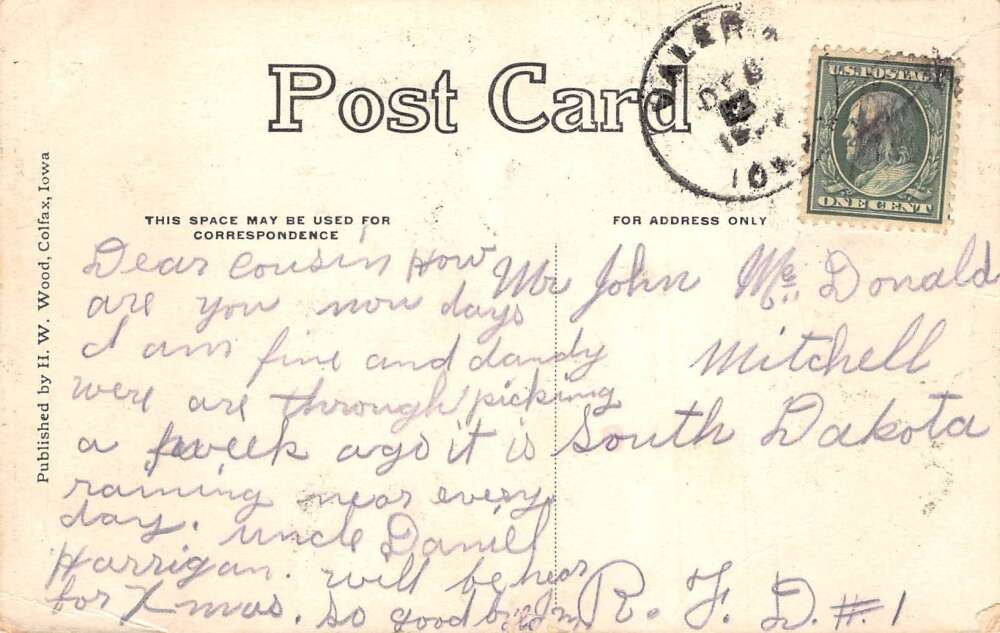 Post Card
THIS SPACE MAY BE USED FOR
CORRESPONDENCE
FOR ADDRESS ONLY
Published by H. W. Wood, Colfax, Iowa
DEC
IOWA
U.S. POSTAGE
ONE CENT
Dear cousin How
are you now days
I am fine and dandy
were are through picking
a week ago it is
raining near every
day. uncle Daniel
Harrigan. will be hear
for Xmas. so good by
Mr John Mc Donald
Mitchell
South Dakota
R. F. D. #1